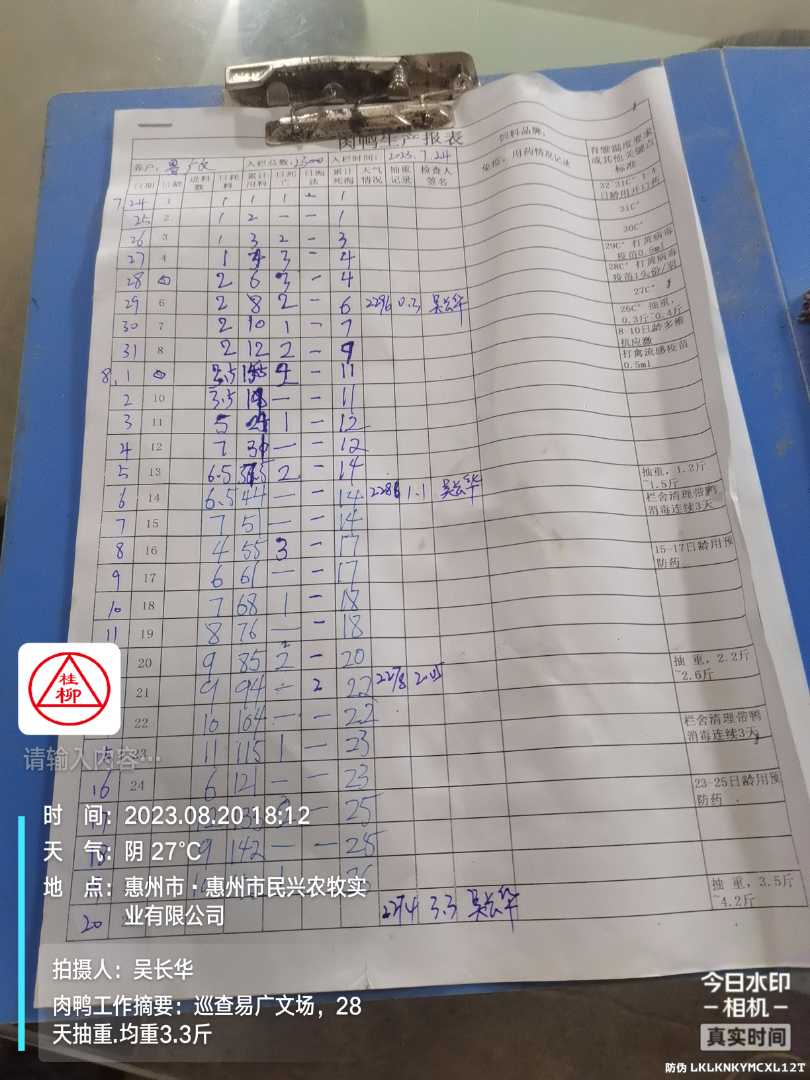 肉鸭生产报表
客户: 入栏总数: 入栏时间: 2023.7.24 饲料品牌:
日期 日龄 进料数 日耗料 累计用料 日死亡 日淘汰 累计死淘 天气情况 抽重记录 检查人签名 免疫、用药情况记录 育雏温度要求或其他关键点标准
7 24 1 1 1 1 1 32-31C° 1-4日龄用开口药
25 2 1 2 — — 1 31C°
26 3 1 3 2 — 3 30C°
27 4 1 3 — 4 29C° 打黄病毒疫苗0.5ml
28 2 6 3 — 4 28C° 打黄病毒疫苗1头份/羽
29 6 2 8 2 — 6 2296 0.3 吴长华 27C°
30 7 2 10 1 — 7 26C° 抽重,0.3斤-0.4斤
31 8 2 12 2 — 9 8-10日龄多酶抗应激
8.1 2.5 — 11 打禽流感疫苗0.5ml
2 10 3.5 — — 11
3 11 5 1 — 12
4 12 7 — — 12
5 13 6.5 2 — 14 抽重,1.2斤~1.5斤
6 14 6.5 44 — — 14 2286 1.1 吴长华 栏舍清理带鸭消毒连续3天
7 15 7 51 — — 14
8 16 4 55 3 — 17 15-17日龄用预防药
9 17 6 61 — — 17
10 18 7 68 1 — 18
11 19 8 76 — — 18
20 9 85 2 — 20 抽重,2.2斤~2.6斤
21 9 94 — 2 22 2278 2.05
22 10 104 — — 22 栏舍清理带鸭消毒连续3天
23 11 115 1 — 23
16 24 6 121 — — 23 23-25日龄用预防药
25
9 142 — — 25
20 2274 3.3 吴长华 抽重,3.5斤~4.2斤
桂柳
请输入内容…
时 间: 2023.08.20 18:12
天 气: 阴 27℃
地 点: 惠州市·惠州市民兴农牧实
业有限公司
拍摄人: 吴长华
肉鸭工作摘要: 巡查易广文场, 28
天抽重.均重3.3斤
今日水印
-相机-
真实时间
防伪 LKLKNKYMCXL12T